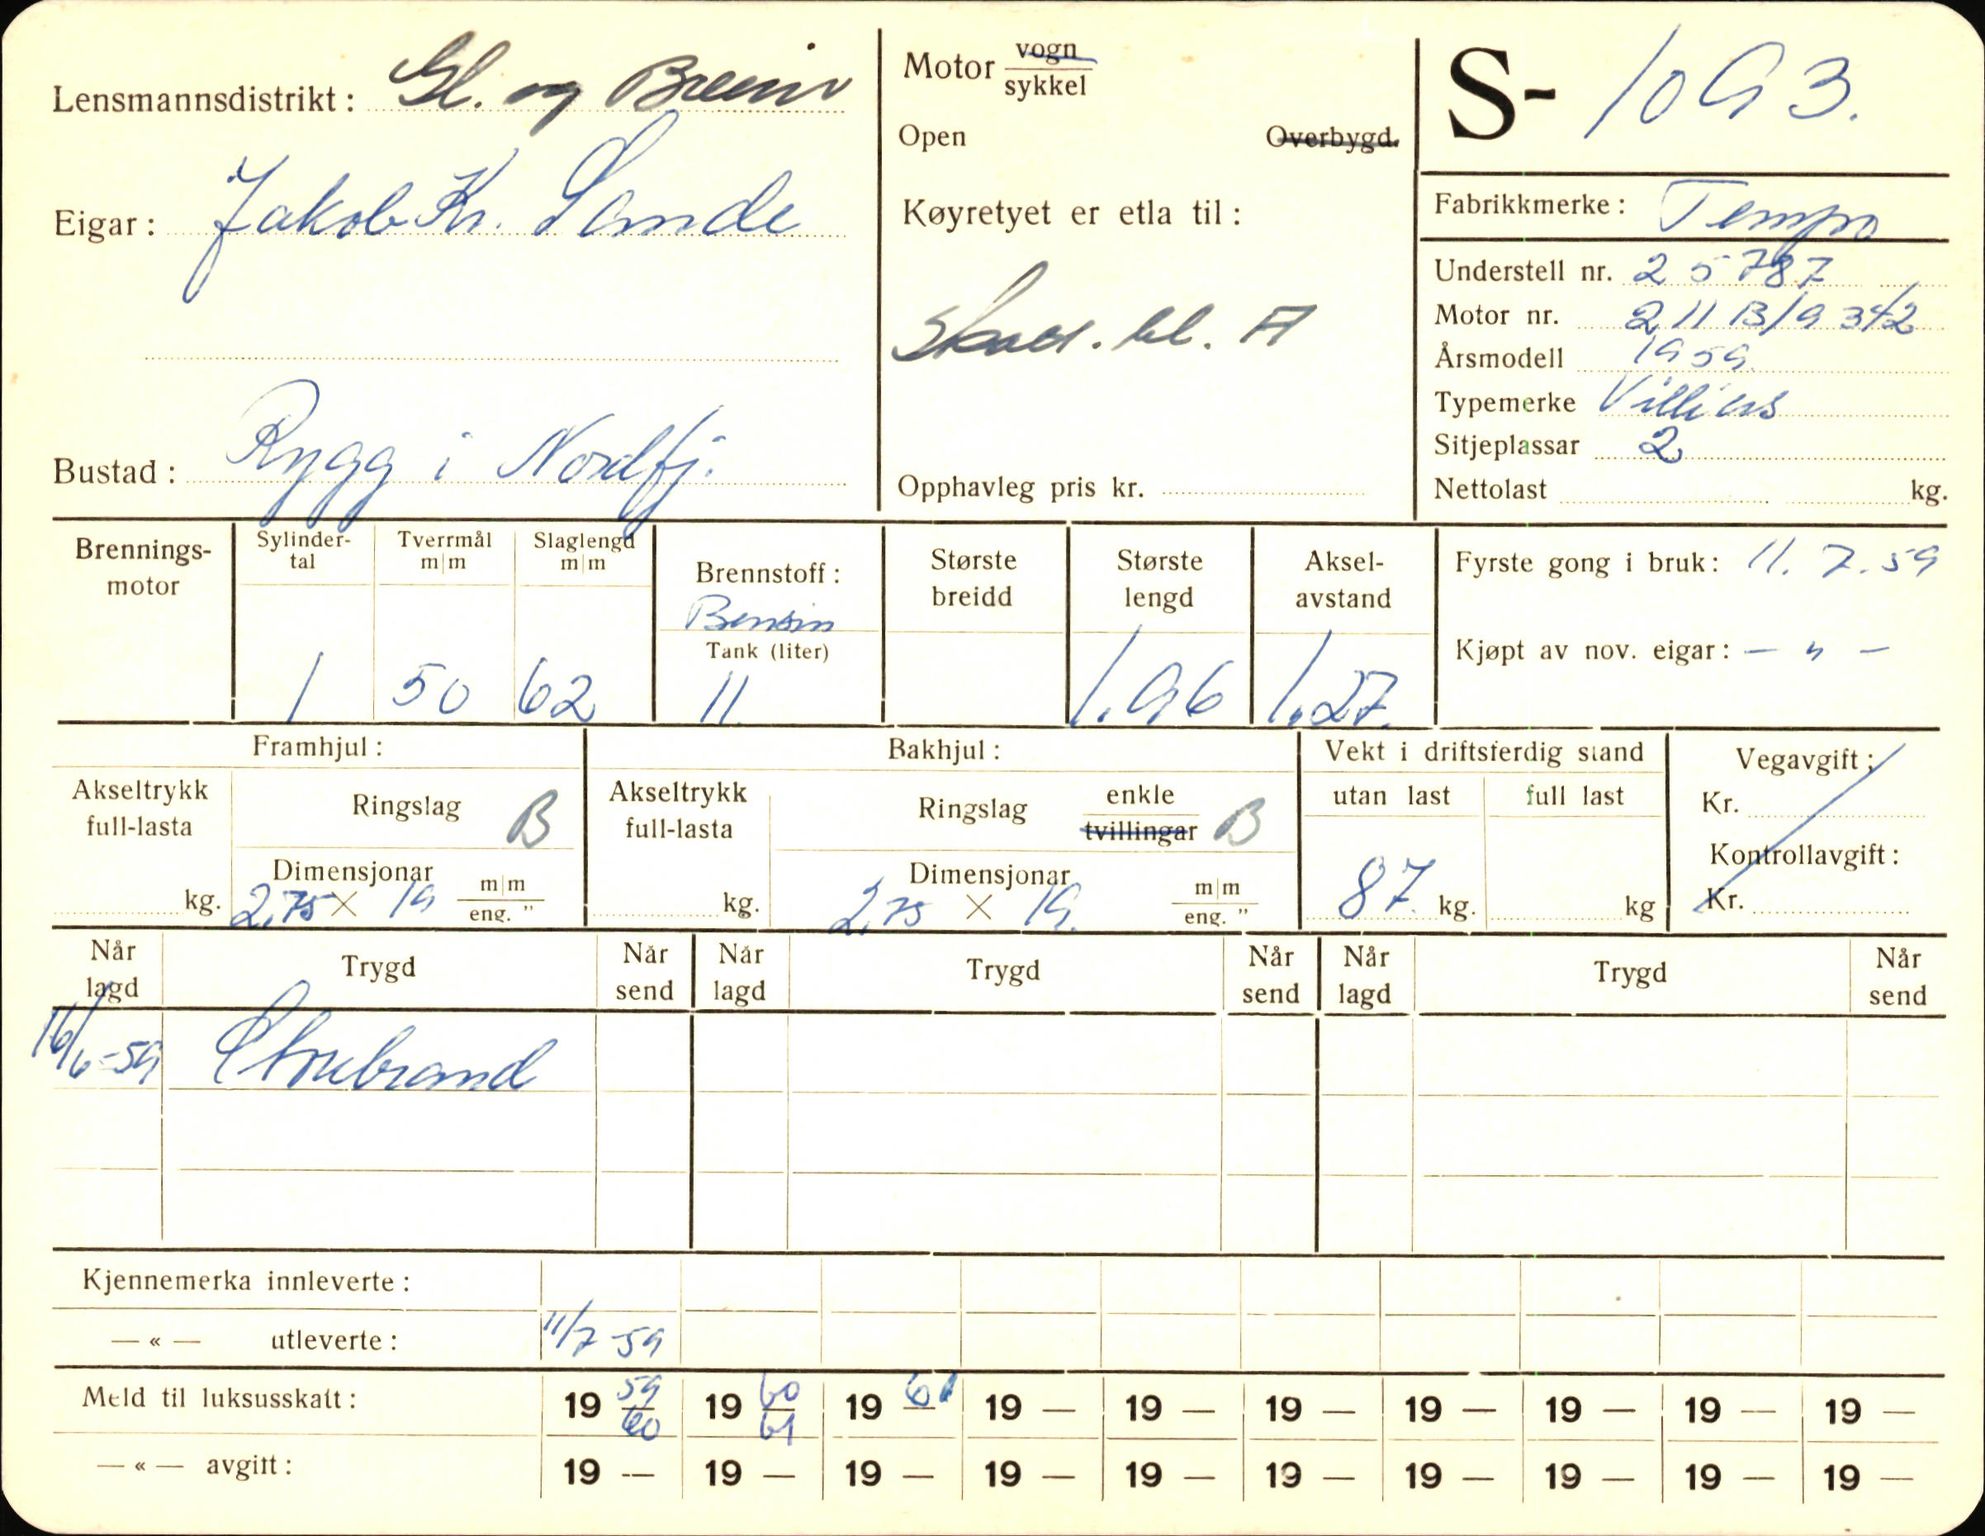 Lensmannsdistrikt: Gl. og Breim
Eigar: Jakob Kr. Sande
Bustad: Rygg i Nordfj.
Motor vogn
sykkel
Open Overbygd.
Køyretyet er etla til:
Skad. bl. A
Opphavleg pris kr.
S- 1093.
Fabrikkmerke: Tempo
Understell nr. 25787
Motor nr. 211 B/9342
Årsmodell 1959.
Typemerke Villiers
Sitjeplassar 2
Nettolast kg.
Brennings-
motor
Sylinder-
tal
1
Tverrmål
m|m
50
Slaglengd
m|m
62
Brennstoff:
Bensin
Tank (liter)
11
Største
breidd
Største
lengd
1.96
Aksel-
avstand
1.27.
Fyrste gong i bruk: 11.7.59
Kjøpt av nov. eigar: — " —
Framhjul:
Akseltrykk
full-lasta
kg.
Ringslag B
Dimensjonar
2,75 × 19 m|m
eng. "
Bakhjul:
Akseltrykk
full-lasta
kg.
Ringslag enkle
tvillingar B
Dimensjonar
2,75 × 19. m|m
eng. "
Vekt i driftsferdig stand
utan last
87. kg.
full last
kg
Vegavgift:
Kr.
Kontrollavgift:
Kr.
Når
lagd Trygd Når
send Når
lagd Trygd Når
send Når
lagd Trygd Når
send
16/6-59 Storebrand
Kjennemerka innleverte:
— « — utleverte: 11/7 59
Meld til luksusskatt: 19 59/60 19 60/61 19 61 19 — 19 — 19 — 19 — 19 — 19 — 19 —
— « — avgift: 19 — 19 — 19 — 19 — 19 — 19 — 19 — 19 — 19 — 19 —